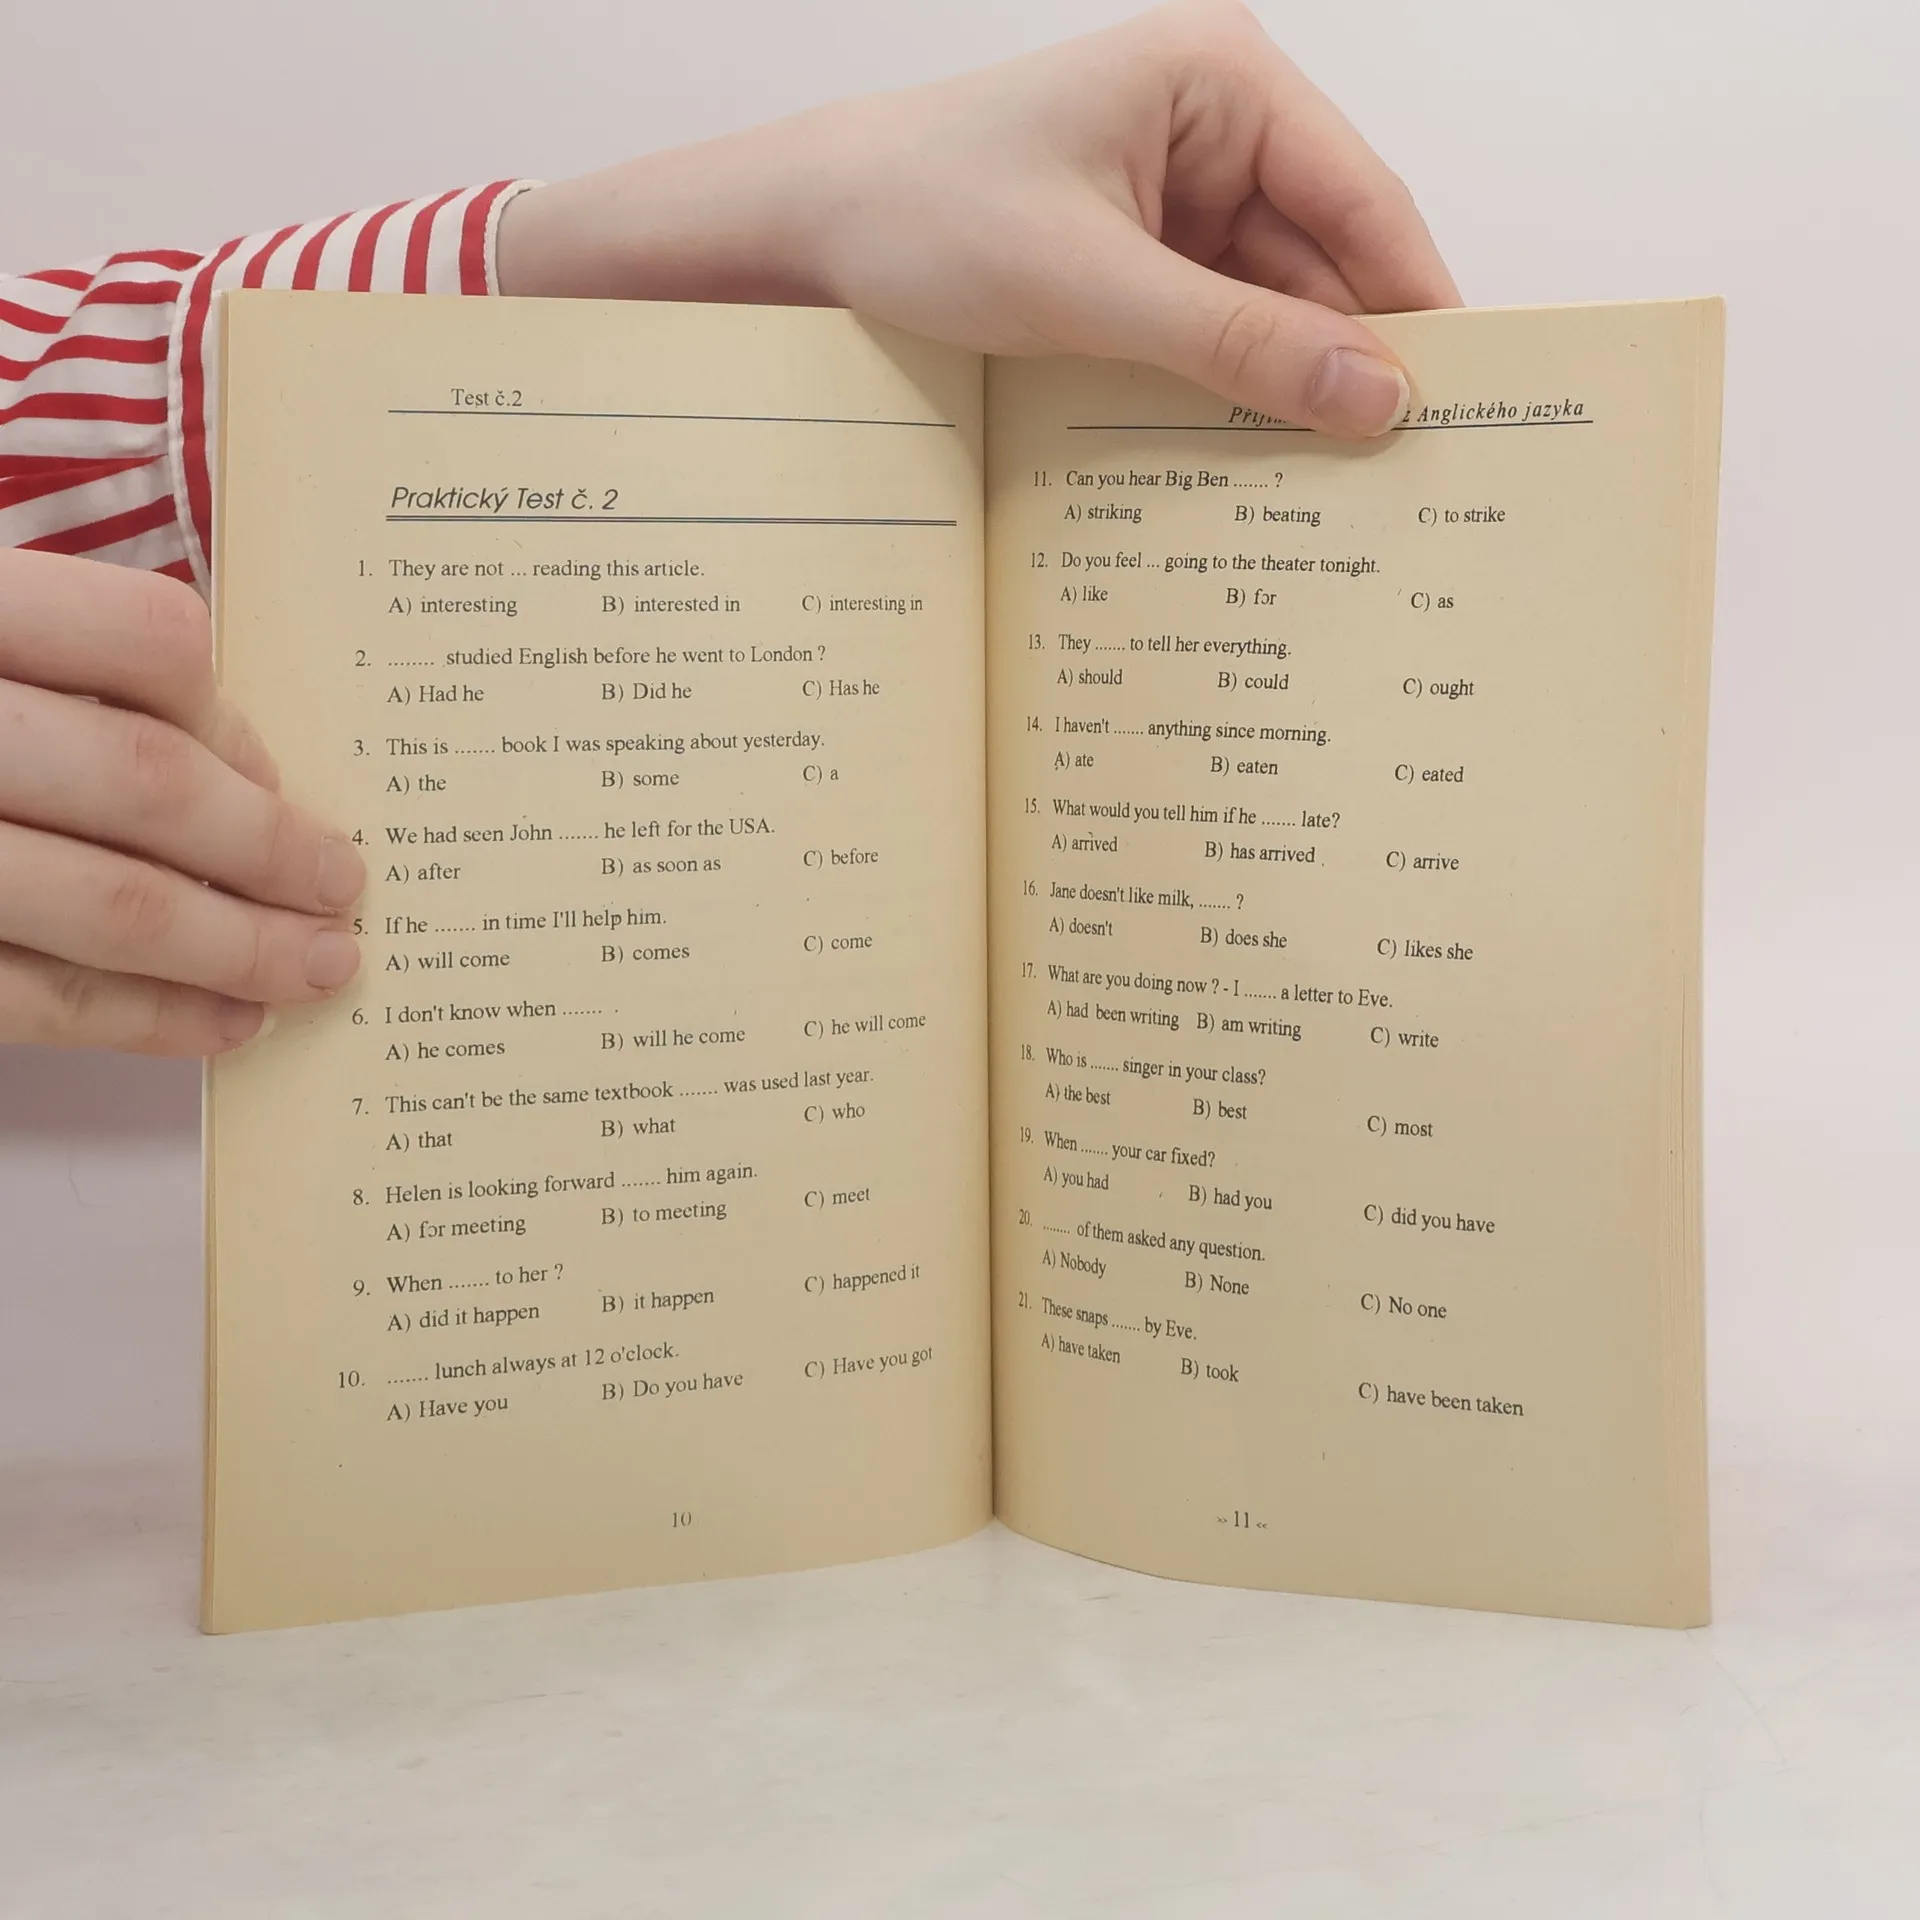 Test č.2
Praktický Test č. 2
1. They are not ... reading this article.
A) interesting B) interested in C) interesting in
2. ........ studied English before he went to London ?
A) Had he B) Did he C) Has he
3. This is ....... book I was speaking about yesterday.
A) the B) some C) a
4. We had seen John ....... he left for the USA.
A) after B) as soon as C) before
5. If he ....... in time I'll help him.
A) will come B) comes C) come
6. I don't know when ....... .
A) he comes B) will he come C) he will come
7. This can't be the same textbook ....... was used last year.
A) that B) what C) who
8. Helen is looking forward ....... him again.
A) for meeting B) to meeting C) meet
9. When ....... to her ?
A) did it happen B) it happen C) happened it
10. ....... lunch always at 12 o'clock.
A) Have you B) Do you have C) Have you got
10
z Anglického jazyka
11. Can you hear Big Ben ....... ?
A) striking B) beating C) to strike
12. Do you feel ... going to the theater tonight.
A) like B) for C) as
13. They ....... to tell her everything.
A) should B) could C) ought
14. I haven't ....... anything since morning.
A) ate B) eaten C) eated
15. What would you tell him if he ....... late?
A) arrived B) has arrived C) arrive
16. Jane doesn't like milk, ....... ?
A) doesn't B) does she C) likes she
17. What are you doing now ? - I ....... a letter to Eve.
A) had been writing B) am writing C) write
18. Who is ....... singer in your class?
A) the best B) best C) most
19. When ....... your car fixed?
A) you had B) had you C) did you have
20. ....... of them asked any question.
A) Nobody B) None C) No one
21. These snaps ....... by Eve.
A) have taken B) took C) have been taken
» 11 «